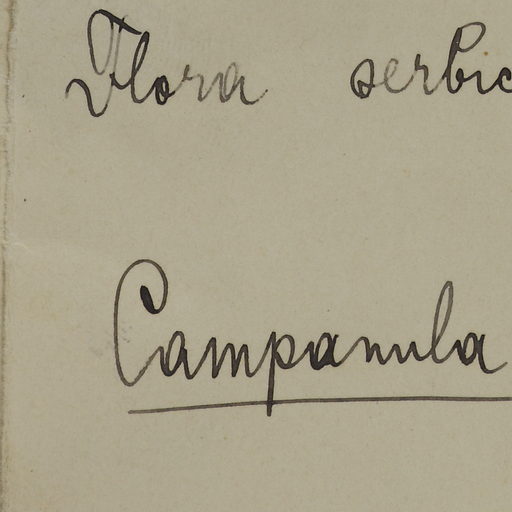 Flora serbic
Campanula